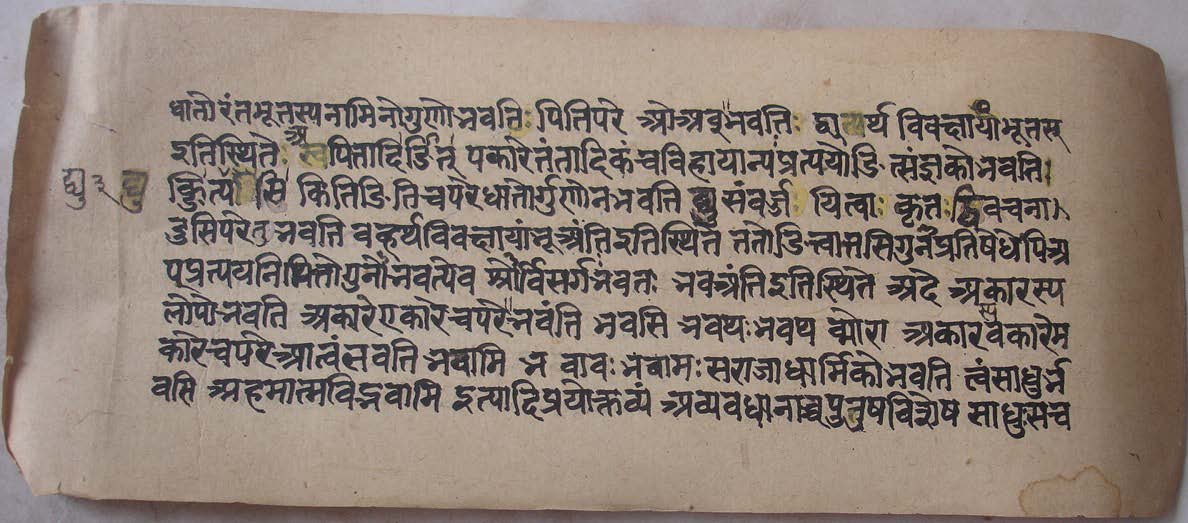 धातोरंतभूतस्य नामिनो गुणो भवति पिति परे ओ अव् भवति द्व्यर्थ विवक्षायां भूतस्
इति स्थिते अपित्तादिर्ङित् पकारेतं तादिकं च विहायान्यप्रत्ययो ङित्संज्ञको भवति।
किति ङिति च परे धातोर्गुणो न भवति संवर्ज यित्वा कृत द्विवचना
उसि परे तु भवति बव्हर्थ विवक्षायां भू अंति इति स्थिते ततो ङित्वात्तसि गुन प्रतिषेधेपि अ
पप्रत्ययनिमित्तो गुनो भवत्येव श्रोर्विसर्ग भवतः भव अंति इति स्थिते अदे अकारस्य
लोपो भवति अकारे एकारे च परे भवंति भवसि भवथः भवथ व्मोरा अकारस्य वकारे म
कारे च परे आत्वं भवति भवामि भ वावः भवामः स राजा धार्मिको भवति त्वं साधुर्भ
वसि अहमात्मविद्भवामि इत्यादि प्रयोक्तव्यं अव्यवधानाच्च पुरुषविशेष साधुः स च